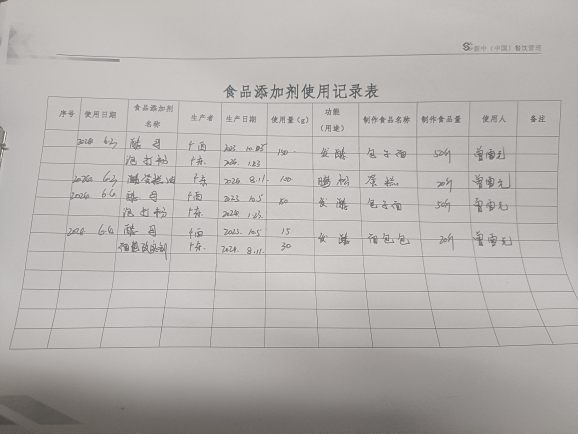 新中（中国）餐饮管理
食品添加剂使用记录表
序号 使用日期 食品添加剂名称 生产者 生产日期 使用量（g） 功能（用途） 制作食品名称 制作食品量 使用人 备注
2024 6.3 酵母 广西 2023 150 发酵 包子面 50斤
泡打粉 广东 2024 1.23
2024 6.3 蛋糕油 广东 2024 8.11 100 蛋糕 20斤
2024 6.4 酵母 广西 2023 10.5 发酵 包子面 50斤
泡打粉 广东 2024 1.23
2024 6.4 酵母 广西 2023 10.5 15 发酵 面包 20斤
面包改良剂 广东 2024 8.11 30